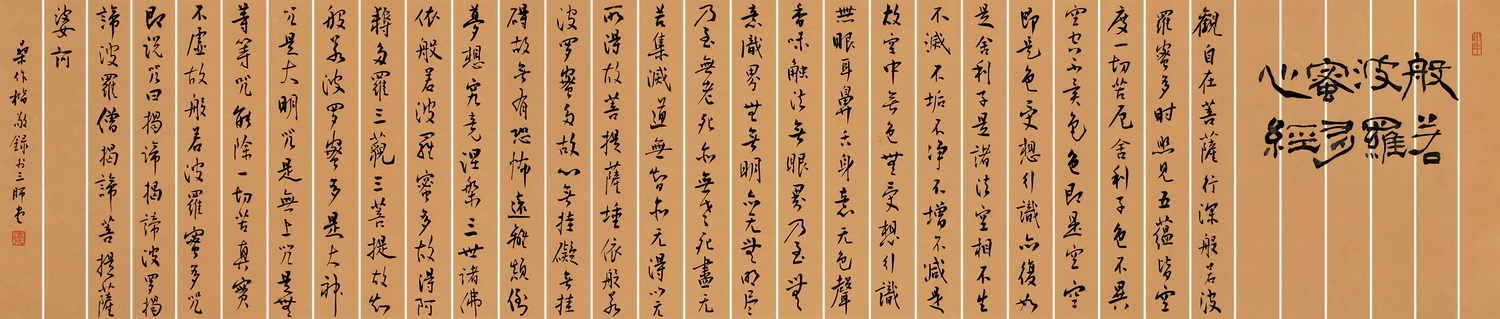 般若
波羅
蜜多
心經
觀自在菩薩行深般若波
羅蜜多时照见五蕴皆空
度一切苦厄舍利子色不異
空空不異色色即是空空
即是色受想行識亦復如
是舍利子是諸法空相不生
不滅不垢不净不增不减是
故空中無色無受想行識
無眼耳鼻舌身意无色聲
香味触法無眼界乃至無
意識界無無明亦无無明尽
乃至無老死亦無老死盡无
苦集滅道無智亦无得以无
所得故菩提薩埵依般若
波罗蜜多故心無挂礙無挂
碍故無有恐怖遠離顛倒
夢想究竟涅槃三世諸佛
依般若波羅蜜多故得阿
耨多羅三藐三菩提故知
般若波罗蜜多是大神
咒是大明咒是無上咒是無
等等咒能除一切苦真實
不虚故般若波羅蜜多咒
即说咒曰揭諦揭諦波罗揭
諦波羅僧揭諦菩提薩
婆訶
桑作楷敬録於三师堂